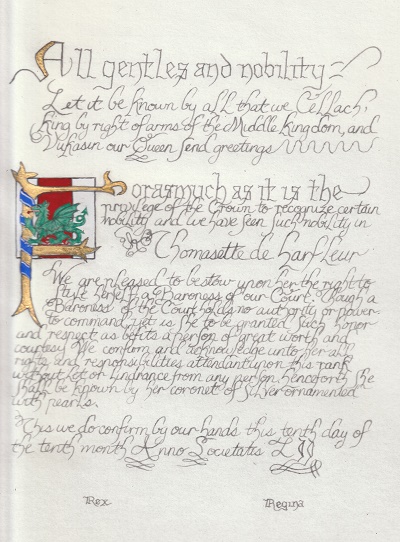 All gentles and nobility
Let it be known by all that we Cellach,
King by right of arms of the Middle Kingdom, and
Vukasin our Queen send greetings
Forasmuch as it is the
privilege of the Crown to recognize certain
nobility and we have seen such nobility in
Thomasette de harfleur
We are pleased to bestow upon her the right to
style herself a Baroness of our Court. Though a
Baroness of the Court holds no authority or power
to command, yet is she to be granted such honor
and respect as befits a person of great worth and
courtesy. We confirm and acknowledge unto her all
rights and responsibilities attendant upon this rank
without let or hindrance from any person henceforth. She
shall be known by her coronet of Silver ornamented
with pearls.
This we do confirm by our hands this tenth day of
the tenth month Anno Societatis
Rex Regina